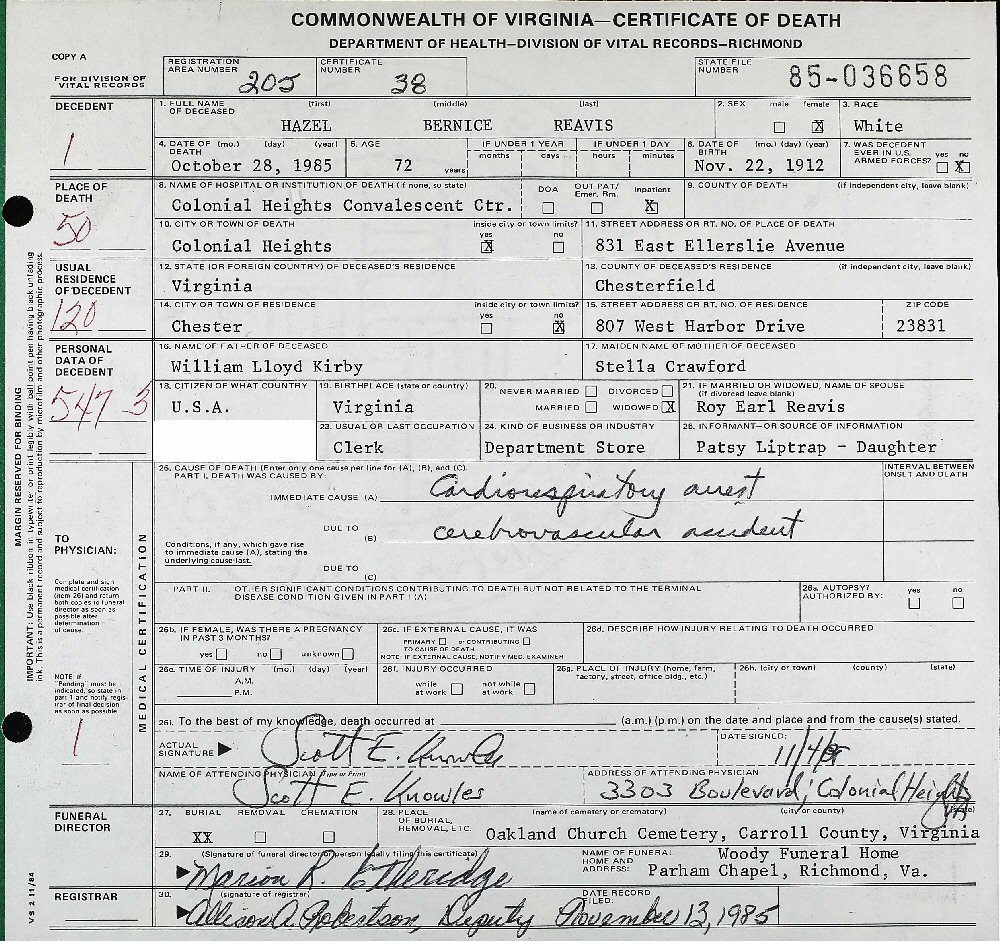 COMMONWEALTH OF VIRGINIA—CERTIFICATE OF DEATH
DEPARTMENT OF HEALTH—DIVISION OF VITAL RECORDS—RICHMOND
COPY A
FOR DIVISION OF VITAL RECORDS
REGISTRATION AREA NUMBER 205
CERTIFICATE NUMBER 38
STATE FILE NUMBER 85-036658
DECEDENT
1
1. FULL NAME OF DECEASED (first) (middle) (last)
HAZEL BERNICE REAVIS
2. SEX male female X
3. RACE
White
4. DATE OF DEATH (mo.) (day) (year)
October 28, 1985
5. AGE
72 years
IF UNDER 1 YEAR months days
IF UNDER 1 DAY hours minutes
6. DATE OF BIRTH (mo.) (day) (year)
Nov. 22, 1912
7. WAS DECEDENT EVER IN U.S. ARMED FORCES? yes no X
PLACE OF DEATH
50
8. NAME OF HOSPITAL OR INSTITUTION OF DEATH (if none, so state)
Colonial Heights Convalescent Ctr.
DOA OUT PAT/ Emer. Rm. Inpatient X
9. COUNTY OF DEATH (if independent city, leave blank)
10. CITY OR TOWN OF DEATH inside city or town limits? yes X no
Colonial Heights
11. STREET ADDRESS OR RT. NO. OF PLACE OF DEATH
831 East Ellerslie Avenue
USUAL RESIDENCE OF DECEDENT
120
12. STATE (OR FOREIGN COUNTRY) OF DECEASED'S RESIDENCE
Virginia
13. COUNTY OF DECEASED'S RESIDENCE (if independent city, leave blank)
Chesterfield
14. CITY OR TOWN OF RESIDENCE inside city or town limits? yes no X
Chester
15. STREET ADDRESS OR RT. NO. OF RESIDENCE ZIP CODE
807 West Harbor Drive 23831
PERSONAL DATA OF DECEDENT
547 3
16. NAME OF FATHER OF DECEASED
William Lloyd Kirby
17. MAIDEN NAME OF MOTHER OF DECEASED
Stella Crawford
18. CITIZEN OF WHAT COUNTRY
U.S.A.
19. BIRTHPLACE (state or country)
Virginia
20. NEVER MARRIED DIVORCED
MARRIED WIDOWED X
21. IF MARRIED OR WIDOWED, NAME OF SPOUSE (if divorced leave blank)
Roy Earl Reavis
23. USUAL OR LAST OCCUPATION
Clerk
24. KIND OF BUSINESS OR INDUSTRY
Department Store
25. INFORMANT—OR SOURCE OF INFORMATION
Patsy Liptrap - Daughter
MARGIN RESERVED FOR BINDING
IMPORTANT: Use black ribbon in typewriter or print legibly with ball point pen having black unfading
ink. This is a permanent record and subject to reproduction by microfilm and other photographic process.
TO PHYSICIAN:
Complete and sign medical certification (item 26) and return both copies to funeral director as soon as possible after determination of cause.
NOTE: If "Pending" must be indicated, so state in part 1 and notify registrar of final decision as soon as possible
1
MEDICAL CERTIFICATION
26. CAUSE OF DEATH (Enter only one cause per line for (A), (B), and (C).
PART I. DEATH WAS CAUSED BY:
INTERVAL BETWEEN ONSET AND DEATH
IMMEDIATE CAUSE (A) Cardiorespiratory arrest
DUE TO
(B) cerebrovascular accident
Conditions, if any, which gave rise to immediate cause (A), stating the underlying cause last.
DUE TO
(C)
PART II. OTHER SIGNIFICANT CONDITIONS CONTRIBUTING TO DEATH BUT NOT RELATED TO THE TERMINAL DISEASE CONDITION GIVEN IN PART I (A)
26a. AUTOPSY? AUTHORIZED BY: yes no
26b. IF FEMALE, WAS THERE A PREGNANCY IN PAST 3 MONTHS?
yes no unknown
26c. IF EXTERNAL CAUSE, IT WAS
PRIMARY or CONTRIBUTING
TO CAUSE OF DEATH
NOTE: IF EXTERNAL CAUSE, NOTIFY MED. EXAMINER
26d. DESCRIBE HOW INJURY RELATING TO DEATH OCCURRED
26e. TIME OF INJURY (mo.) (day) (year)
A.M.
P.M.
26f. INJURY OCCURRED
while at work not while at work
26g. PLACE OF INJURY (home, farm, factory, street, office bldg., etc.)
26h. (city or town) (county) (state)
26i. To the best of my knowledge, death occurred at (a.m.) (p.m.) on the date and place and from the cause(s) stated.
ACTUAL SIGNATURE Scott E. Knowles
DATE SIGNED: 11/4/85
NAME OF ATTENDING PHYSICIAN (Type or Print)
Scott E. Knowles
ADDRESS OF ATTENDING PHYSICIAN
3303 Boulevard; Colonial Heights
FUNERAL DIRECTOR
27. BURIAL REMOVAL CREMATION
XX
28. PLACE OF BURIAL, REMOVAL, ETC. (name of cemetery or crematory) (city or county) (state)
Oakland Church Cemetery, Carroll County, Virginia
29. (Signature of funeral director or person legally filing this certificate)
Marion R. Etheridge
NAME OF FUNERAL HOME AND ADDRESS:
Woody Funeral Home
Parham Chapel, Richmond, Va.
REGISTRAR
30. (signature of registrar)
Allison A. Robertson, Deputy
DATE RECORD FILED:
November 13, 1985
VS 2 11/84